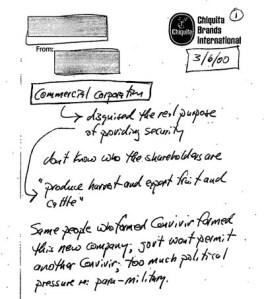 1
Chiquita
Brands
International
From:
3/6/00
Commercial corporation
disguised the real purpose
of providing security
don't know who the shareholders are
"produce harvest and export fruit and
cattle"
Same people who formed Convivir formed
this new company; govt won't permit
another Convivir; too much political
pressure re: para-military.